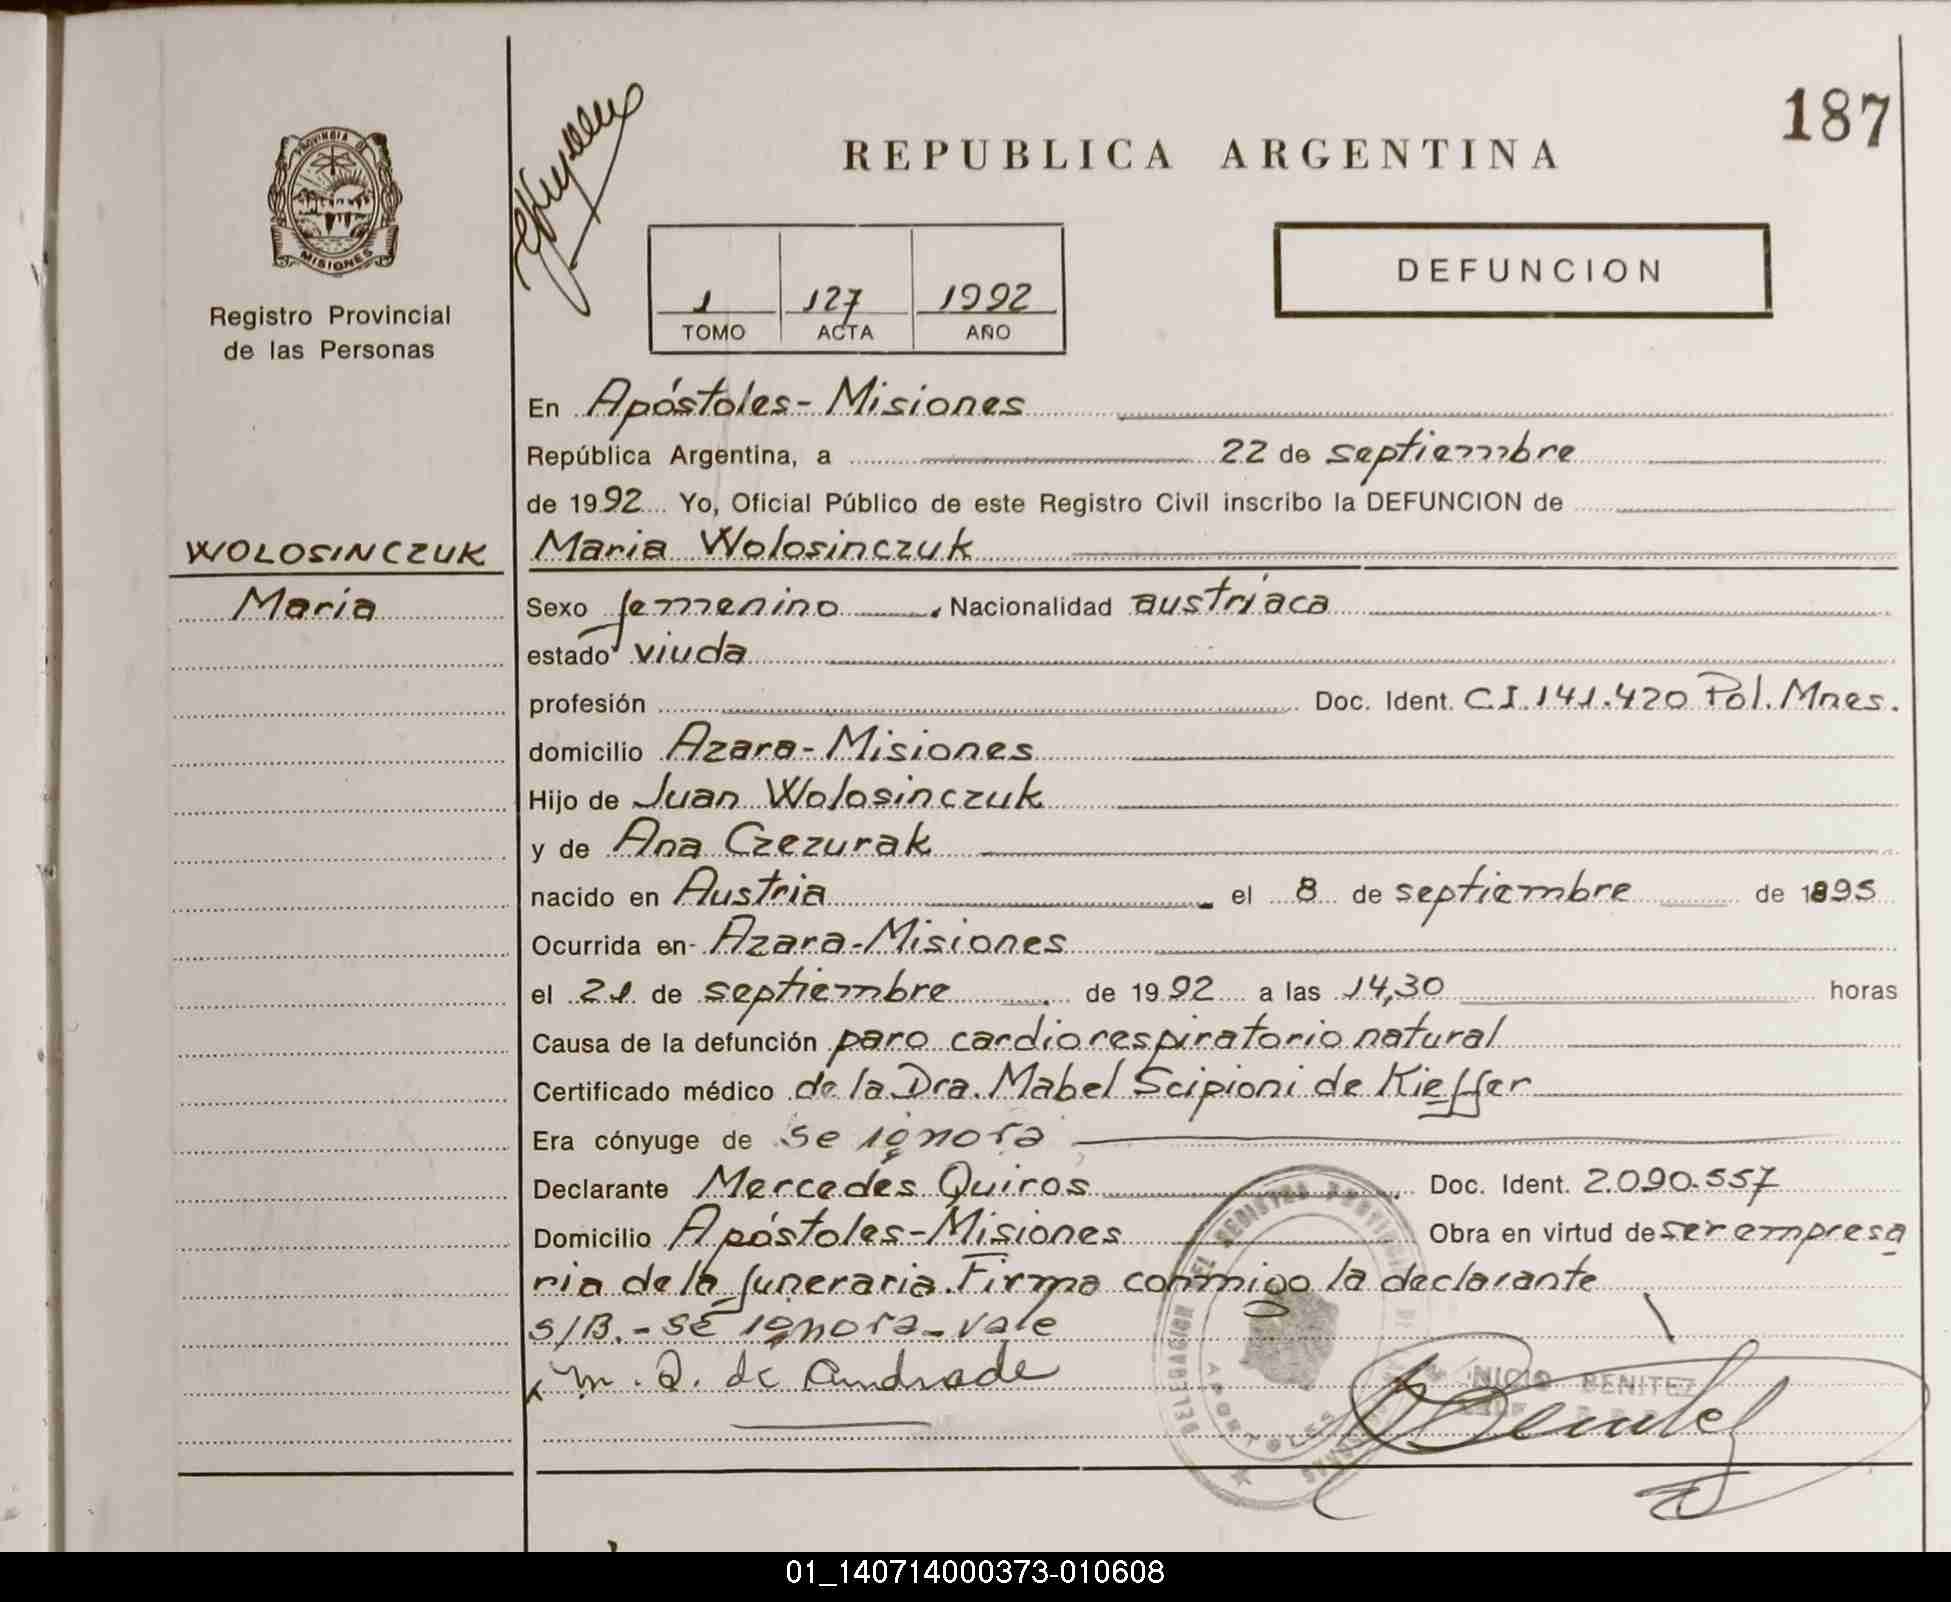 187
REPUBLICA ARGENTINA
PROVINCIA DE
MISIONES
Registro Provincial
de las Personas
DEFUNCION
1 127 1992
TOMO ACTA AÑO
En Apóstoles - Misiones
República Argentina, a 22 de septiembre
de 1992 Yo, Oficial Público de este Registro Civil inscribo la DEFUNCION de
WOLOSINCZUK Maria Wolosinczuk
Maria Sexo femenino. Nacionalidad austríaca
estado viuda
profesión Doc. Ident. C.I. 141.420 Pol. Mnes.
domicilio Azara - Misiones
Hijo de Juan Wolosinczuk
y de Ana Czezurak
nacido en Austria el 8 de septiembre de 1895
Ocurrida en - Azara - Misiones
el 21 de septiembre de 1992 a las 14,30 horas
Causa de la defunción paro cardiorespiratorio natural
Certificado médico de la Dra. Mabel Scipioni de Kieffer
Era cónyuge de se ignora
Declarante Mercedes Quiros Doc. Ident. 2.090.557
Domicilio Apóstoles - Misiones Obra en virtud de ser empresa
ria de la funeraria. Firma conmigo la declarante
S/B. - se ignora - vale
x M. Q. de Andrade
DELEGACION DEL REGISTRO PROVINCIAL DE LAS PERSONAS
APOSTOLES
BENITEZ
01_140714000373-010608